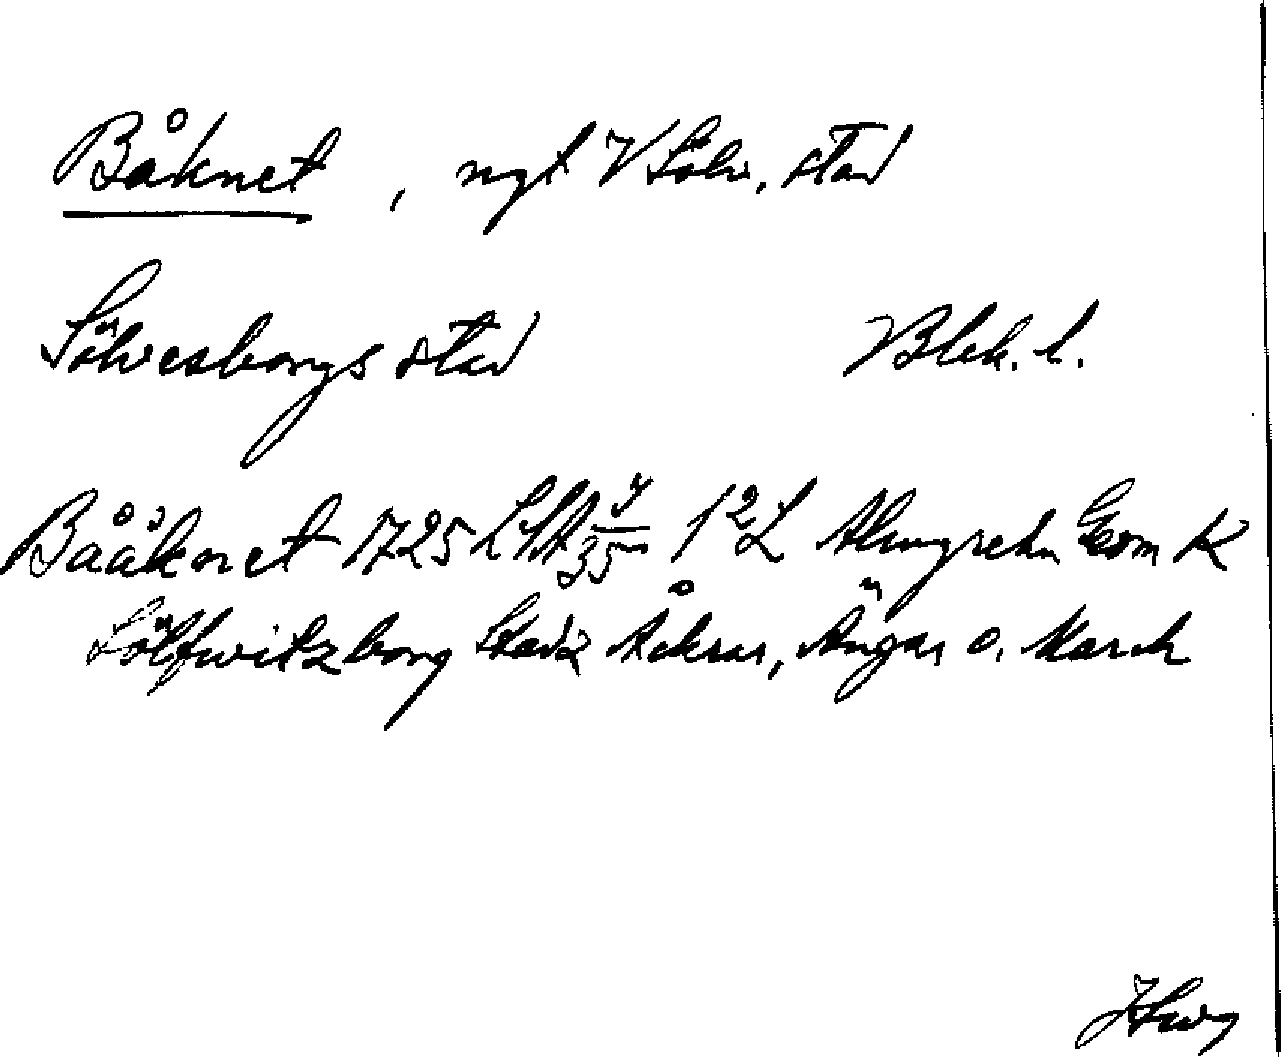 Båknet, ngt V Sölv. stad
Sölvesborgs stad Blek. l.
Bååknet 1725 LSA 35 Almgrehn Geom K
Sölfwitzborg Stadz Åckrar, Ängar o. March